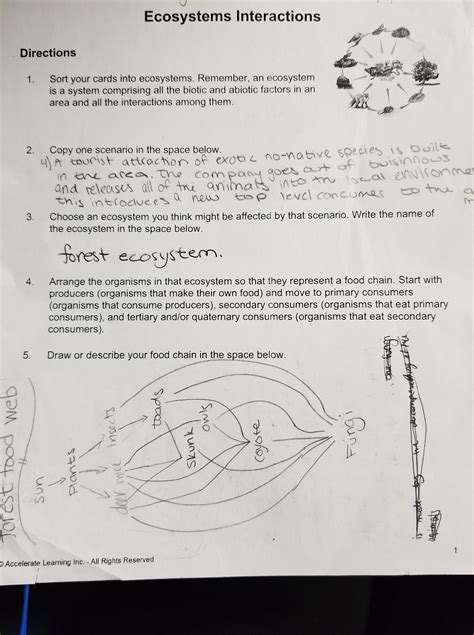 Ecosystems Interactions
Directions
1. Sort your cards into ecosystems. Remember, an ecosystem
is a system comprising all the biotic and abiotic factors in an
area and all the interactions among them.
2. Copy one scenario in the space below.
4) A tourist attraction of exotic no-native species is built
in the area. The company goes out of buisinnows
and releases all of the animals into the local environmen
this introduces a new top level concumer to the
3. Choose an ecosystem you think might be affected by that scenario. Write the name of
the ecosystem in the space below.
forest ecosystem.
4. Arrange the organisms in that ecosystem so that they represent a food chain. Start with
producers (organisms that make their own food) and move to primary consumers
(organisms that consume producers), secondary consumers (organisms that eat primary
consumers), and tertiary and/or quaternary consumers (organisms that eat secondary
consumers).
5. Draw or describe your food chain in the space below.
forest food web
Sun
Plants
deer mice
insects
toads
skunk
owls
coyote
Fungi
the fungi
is made by the decomposing of the
© Accelerate Learning Inc. - All Rights Reserved
1